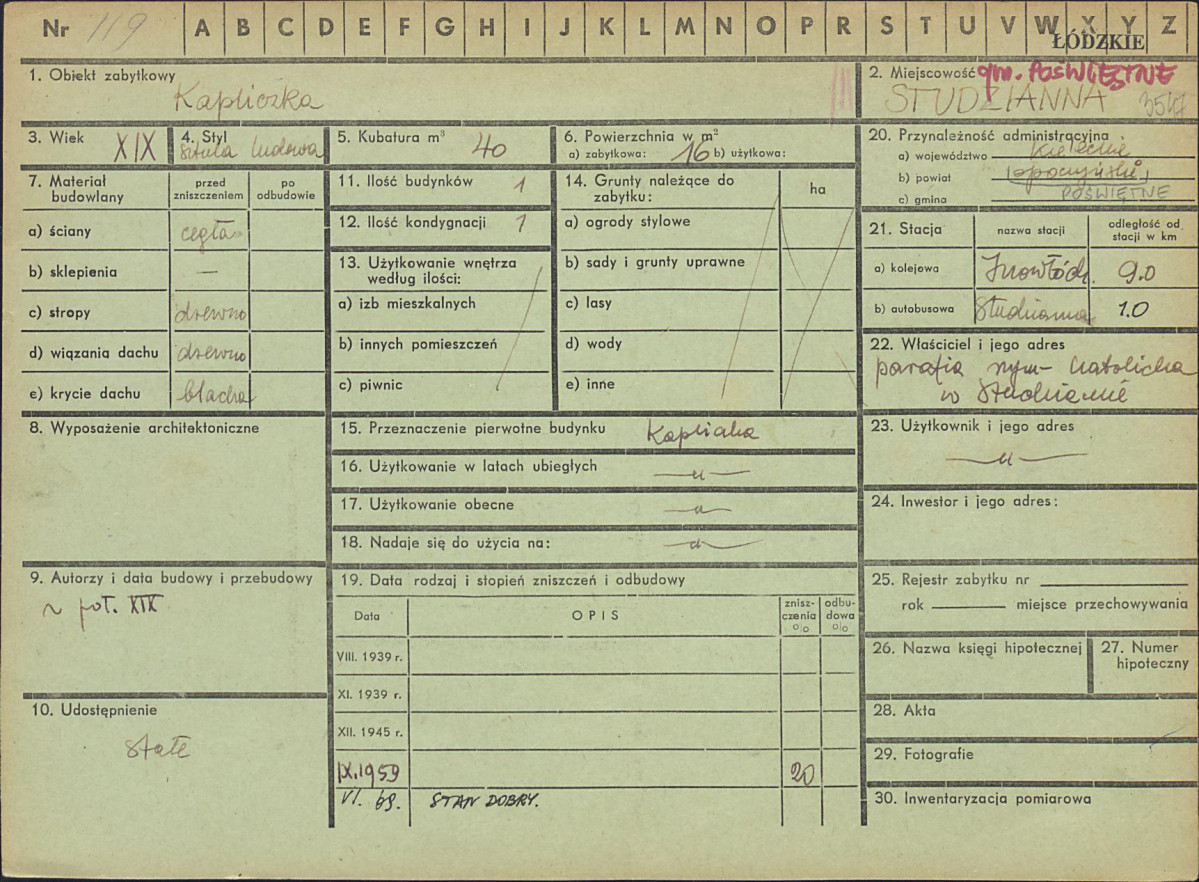 Nr 119 A B C D E F G H I J K L M N O P R S T U V W X Y Z
ŁÓDZKIE
1. Obiekt zabytkowy
Kapliczka
2. Miejscowość gm. POŚWIĘTNE
STUDZIANNA
3. Wiek XIX
4. Styl
sztuka ludowa
5. Kubatura m³ 40
6. Powierzchnia w m²
a) zabytkowa: 16 b) użytkowa:
20. Przynależność administracyjna
a) województwo Kieleckie
b) powiat opoczyński
c) gmina POŚWIĘTNE
7. Materiał budowlany
przed zniszczeniem
po odbudowie
a) ściany cegła
b) sklepienia —
c) stropy drewno
d) wiązania dachu drewno
e) krycie dachu blacha
8. Wyposażenie architektoniczne
9. Autorzy i data budowy i przebudowy
poł. XIX
10. Udostępnienie
stałe
11. Ilość budynków 1
12. Ilość kondygnacji 1
13. Użytkowanie wnętrza
według ilości:
a) izb mieszkalnych
b) innych pomieszczeń
c) piwnic
14. Grunty należące do
zabytku:
ha
a) ogrody stylowe
b) sady i grunty uprawne
c) lasy
d) wody
e) inne
15. Przeznaczenie pierwotne budynku Kapliczka
16. Użytkowanie w latach ubiegłych —„—
17. Użytkowanie obecne —„—
18. Nadaje się do użycia na: —„—
19. Data rodzaj i stopień zniszczeń i odbudowy
Data
OPIS
znisz-
czenia
o/o
odbu-
dowa
o/o
VIII. 1939 r.
XI. 1939 r.
XII. 1945 r.
IX.1959 20
VI. 69. STAN DOBRY.
21. Stacja
nazwa stacji
odległość od
stacji w km
a) kolejowa Inowłódz 9.0
b) autobusowa Studzianna 1.0
22. Właściciel i jego adres
parafia rzym-katolicka
w Studziannie
23. Użytkownik i jego adres
—„—
24. Inwestor i jego adres:
25. Rejestr zabytku nr
rok miejsce przechowywania
26. Nazwa księgi hipotecznej
27. Numer
hipoteczny
28. Akta
29. Fotografie
30. Inwentaryzacja pomiarowa